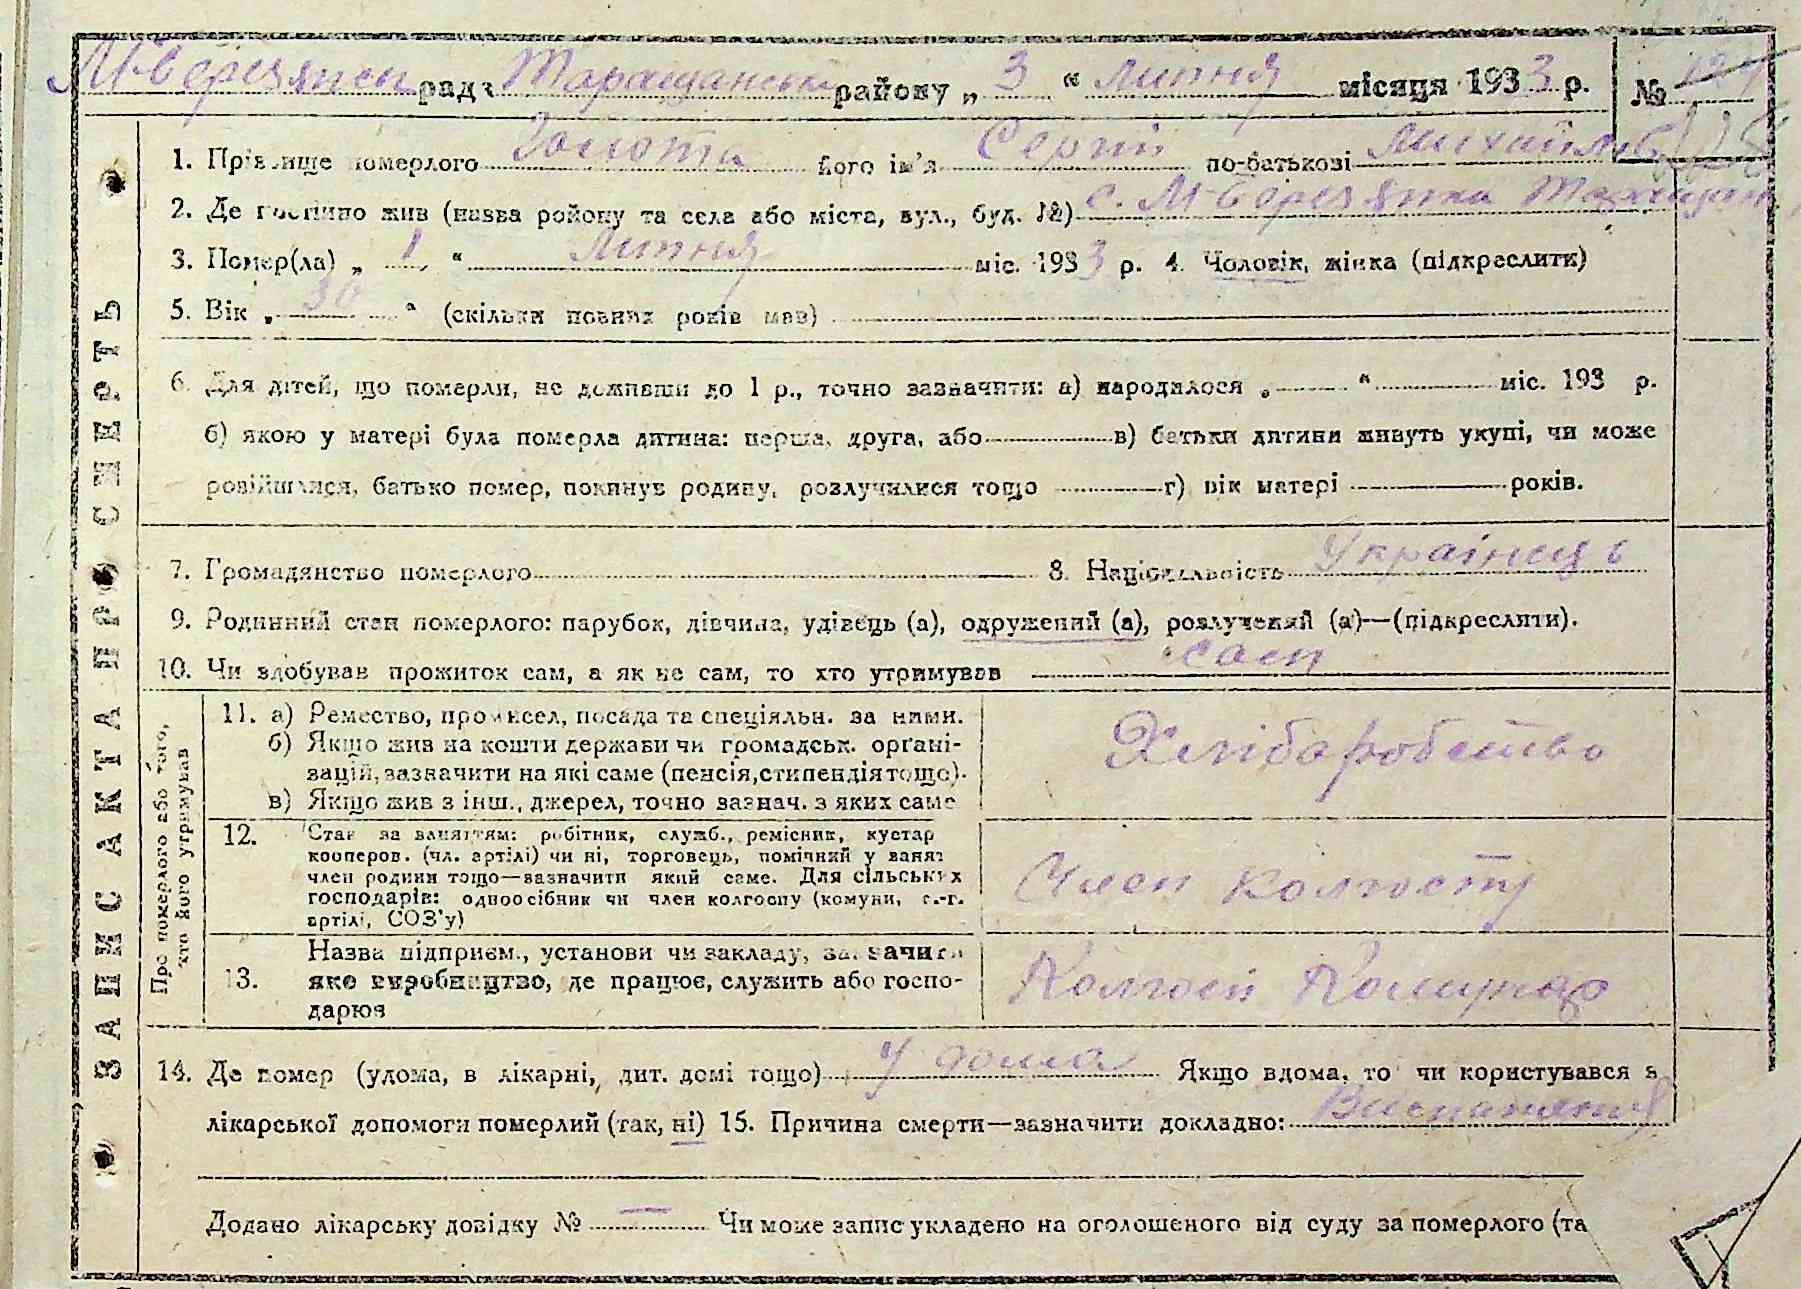 М-Березянсь рада Таращанськ району „ 3 “ липня місяця 1933 р. №
1. Прізвище померлого Золота його ім'я Сергій по-батькові Михайлов
2. Де постійно жив (назва району та села або міста, вул., буд. №) с. М-Березянка Таращан
3. Помер(ла) „ 1 “ липня міс. 1933 р. 4. Чоловік, жінка (підкреслити)
5. Вік „ 30 “ (скільки повних років мав)
6. Для дітей, що померли, не доживши до 1 р., точно зазначити: а) народилося „ “ міс. 193 р.
б) якою у матері була померла дитина: перша, друга, або в) батьки дитини живуть укупі, чи може
розійшлися, батько помер, покинув родину, розлучилися тощо г) вік матері років.
7. Громадянство померлого 8. Національність Українець
9. Родинний стан померлого: парубок, дівчина, удівець (а), одружений (а), розлучений (а)—(підкреслити).
10. Чи здобував прожиток сам, а як не сам, то хто утримував сам
ЗАПИС АКТА ПРО СМЕРТЬ
Про померлого або того,
хто його утримував
11. а) Ремество, промисел, посада та спеціяльн. за ними.
б) Якщо жив на кошти держави чи громадськ. органі-
зацій, зазначити на які саме (пенсія, стипендія тощо).
в) Якщо жив з інш., джерел, точно зазнач. з яких саме
Хліборобство
12. Стан за заняттям: робітник, служб., ремісник, кустар
кооперов. (чл. артілі) чи ні, торговець, помічний у занят
член родини тощо—зазначити який саме. Для сільських
господарів: одноосібник чи член колгоспу (комуни, с.-г.
артілі, СОЗ'у)
Член колгоспу
13. Назва підприєм., установи чи закладу, зазначити
яке виробництво, де працює, служить або госпо-
дарює
Колгосп
14. Де помер (удома, в лікарні, дит. домі тощо) у дома Якщо вдома, то чи користувався з
лікарської допомоги померлий (так, ні) 15. Причина смерти—зазначити докладно: Виснаження
Додано лікарську довідку № — Чи може запис укладено на оголошеного від суду за померлого (та